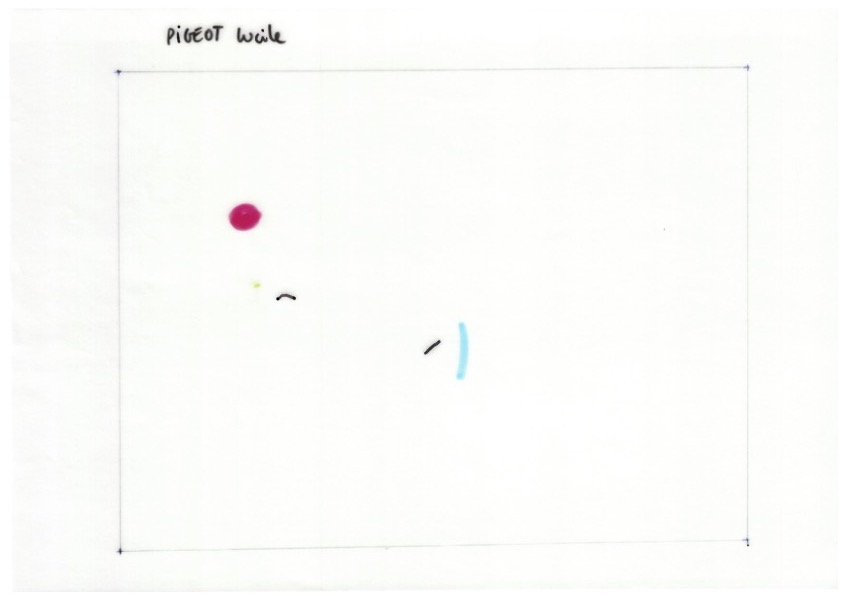 PiGEOT Lucile